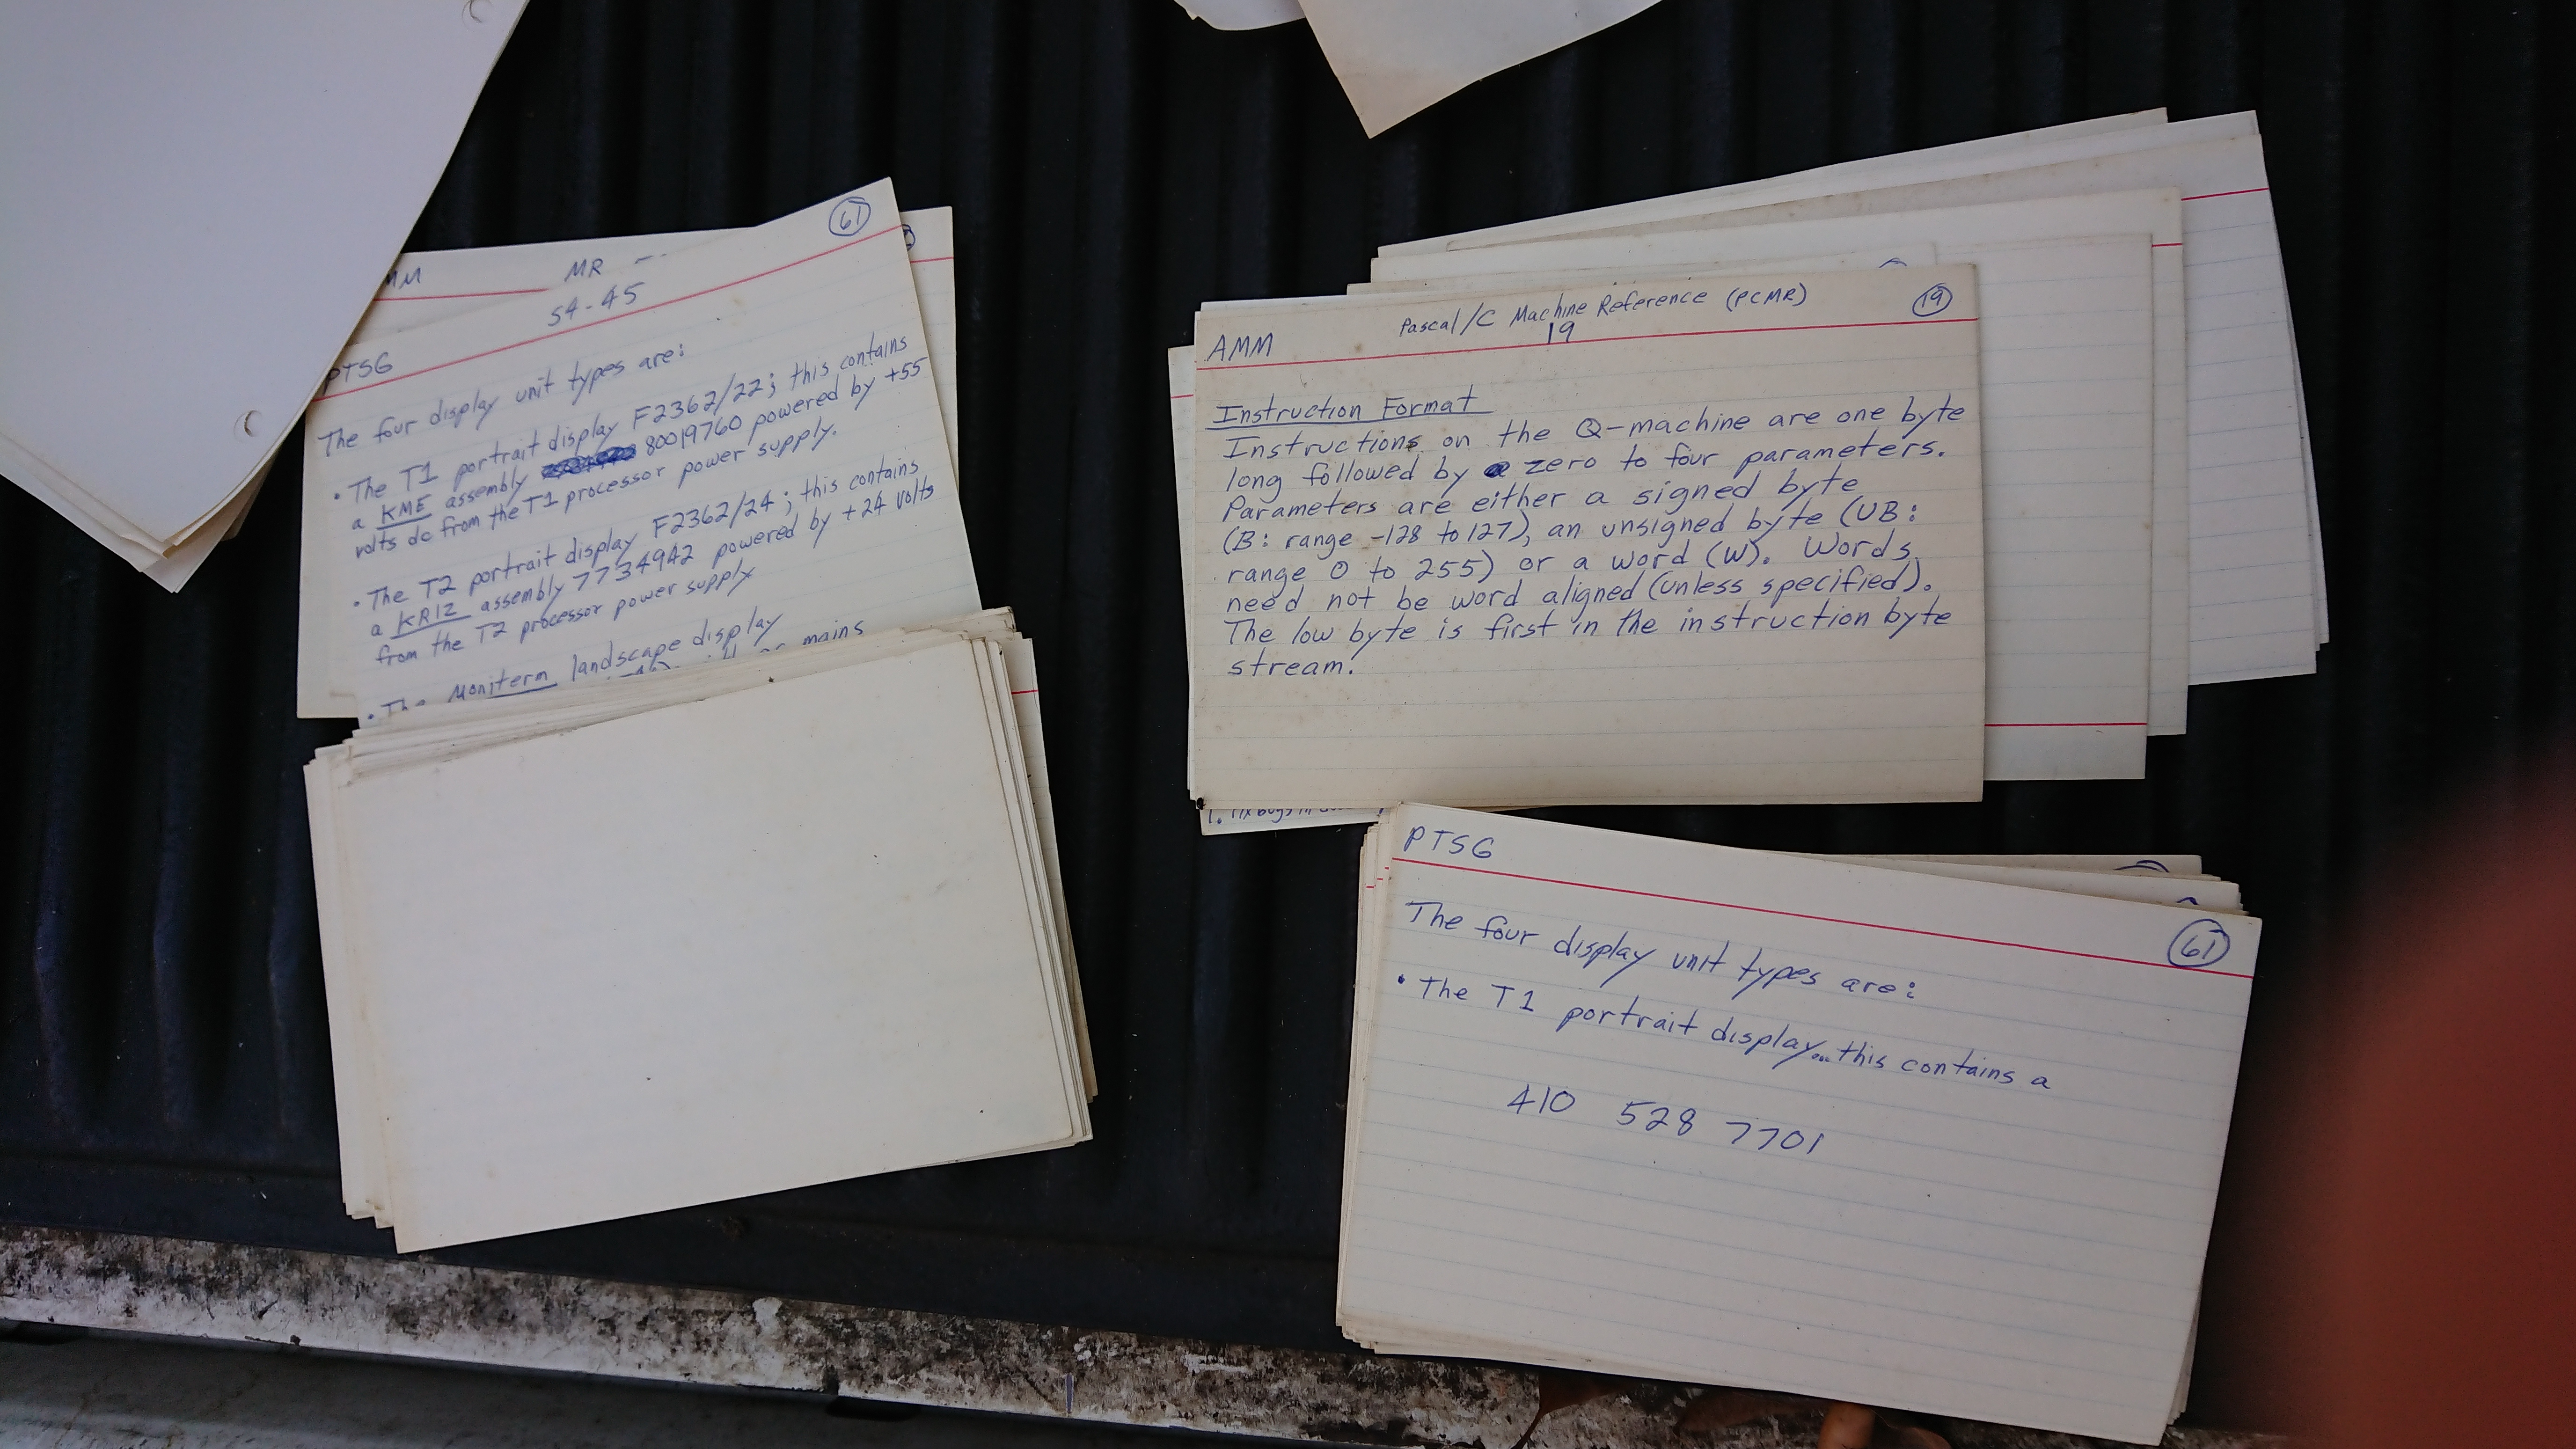 MR
61
54-45
PTSG
The four display unit types are:
• The T1 portrait display F2362/22; this contains
a KME assembly 80019760 powered by +55
volts dc from the T1 processor power supply.
• The T2 portrait display F2362/24; this contains
a KR12 assembly 7734942 powered by +24 volts
from the T2 processor power supply
• The Moniterm landscape display
mains
AMM Pascal/C Machine Reference (PCMR) 19
19
Instruction Format
Instructions on the Q-machine are one byte
long followed by zero to four parameters.
Parameters are either a signed byte
(B: range -128 to 127), an unsigned byte (UB:
range 0 to 255) or a word (W). Words
need not be word aligned (unless specified).
The low byte is first in the instruction byte
stream.
1. Fix bugs in
PTSG
61
The four display unit types are:
• The T1 portrait display...this contains a
410 528 7701